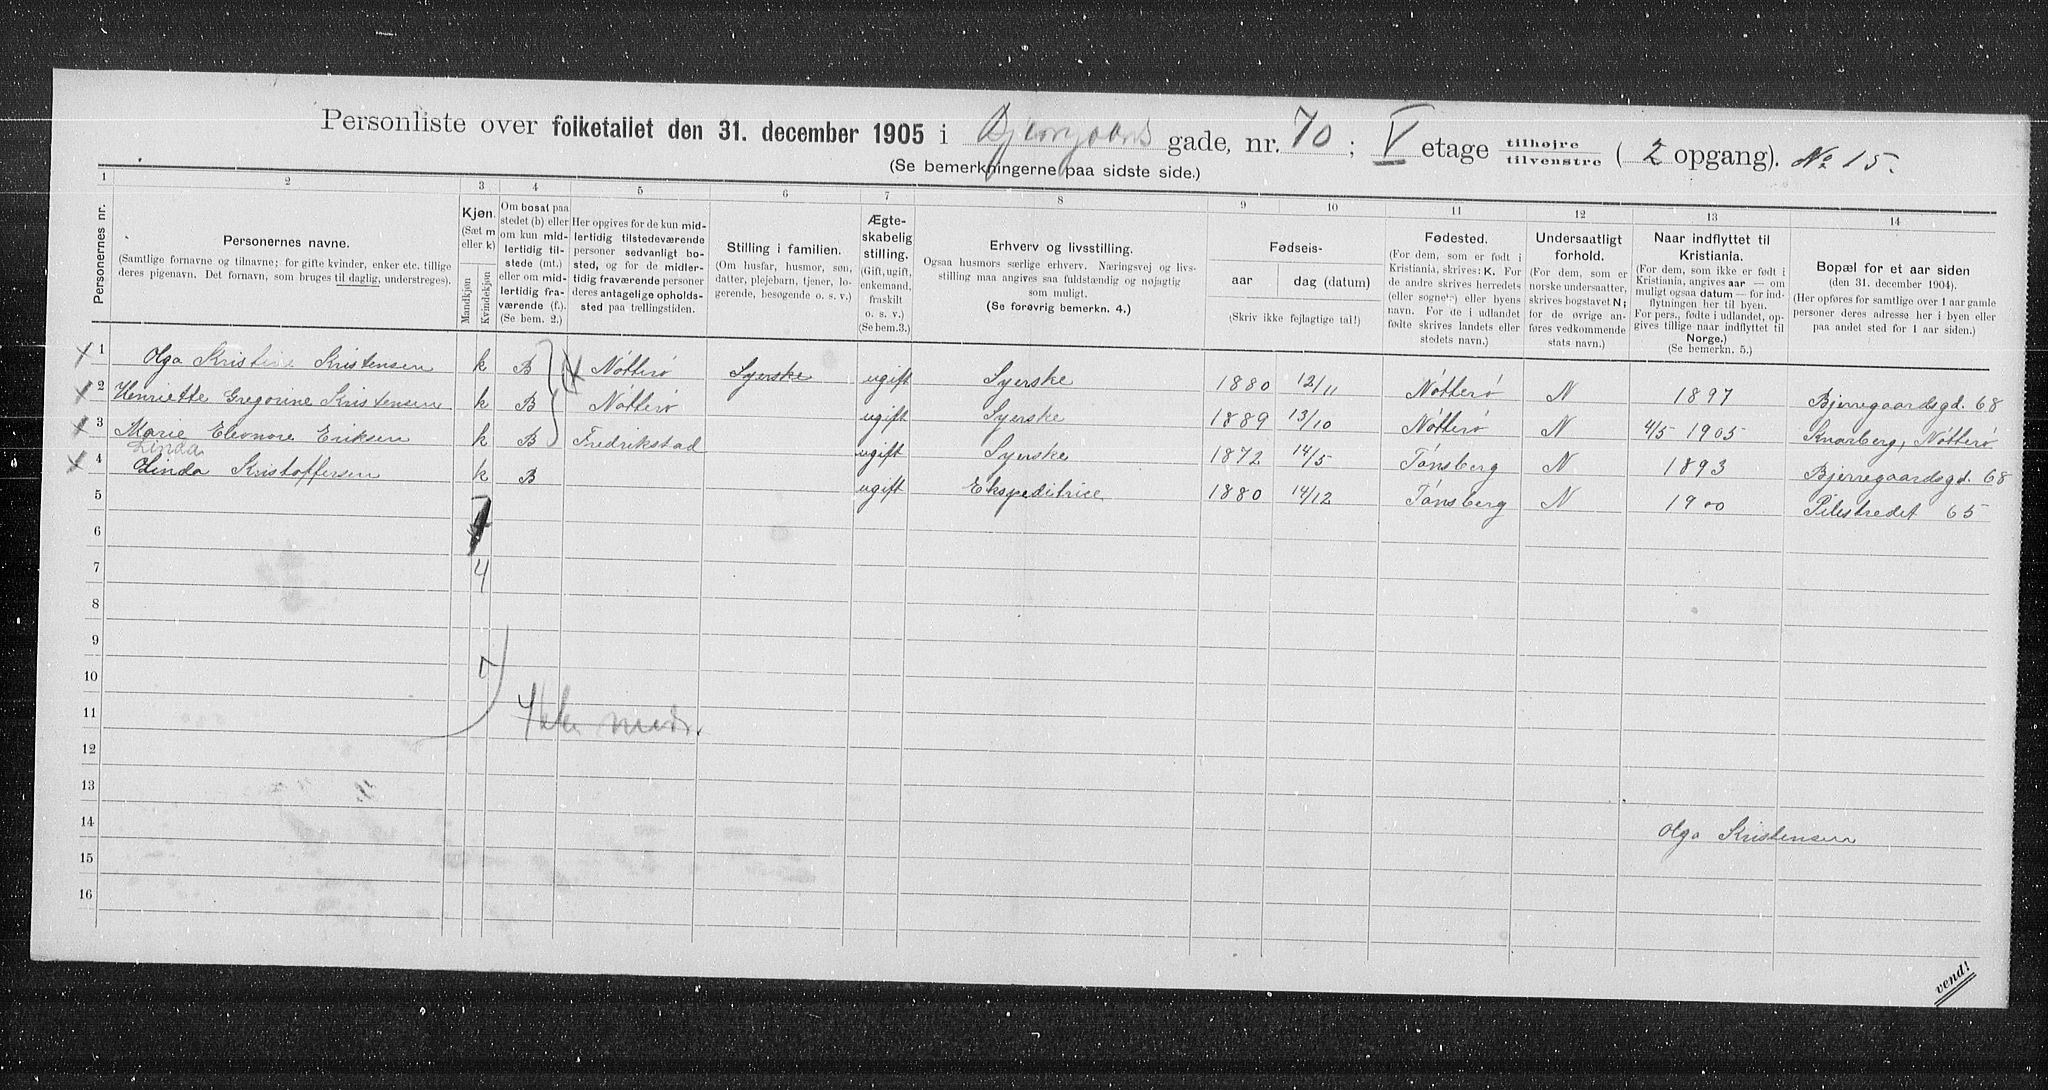 Personliste over folketallet den 31. december 1905 i Bjerregaards gade, nr. 70 ; V etage tilhøjre tilvenstre ( 2 opgang). No 15.
(Se bemerkningerne paa sidste side.)
1 2 3 4 5 6 7 8 9 10 11 12 13 14
Personernes nr.
Personernes navne.
(Samtlige fornavne og tilnavne; for gifte kvinder, enker etc. tillige
deres pigenavn. Det fornavn, som bruges til daglig, understreges).
Kjøn.
(Sæt m
eller k)
Mandkjøn
Kvindekjøn
Om bosat paa
stedet (b) eller
om kun mid-
lertidig til-
stede (mt.)
eller om mid-
lertidig fra-
værende (f.).
(Se bem. 2.)
Her opgives for de kun mid-
lertidig tilstedeværende
personer sedvanligt bo-
sted, og for de midler-
tidig fraværende personer
deres antagelige opholds-
sted paa tællingstiden.
Stilling i familien.
(Om husfar, husmor, søn,
datter, plejebarn, tjener, lo-
gerende, besøgende o. s. v.)
Ægte-
skabelig
stilling.
(Gift, ugift,
enkemand,
fraskilt
o. s. v.)
(Se bem.3.)
Erhverv og livsstilling.
Ogsaa husmors særlige erhverv. Næringsvej og livs-
stilling maa angives saa fuldstændig og nøjagtig
som muligt.
(Se forøvrig bemerkn. 4.)
Fødsels-
aar
dag (datum)
(Skriv ikke fejlagtige tal!)
Fødested.
(For dem, som er født i
Kristiania, skrives: K. For
de andre skrives herredets
(eller sognets) eller byens
navn. For de i udlandet
fødte skrives landets eller
stedets navn.)
Undersaatligt
forhold.
(For dem, som er
norske undersaatter,
skrives bogstavet N;
for de øvrige an-
føres vedkommende
stats navn.)
Naar indflyttet til
Kristiania.
(For dem, som ikke er født i
Kristiania, angives aar — om
muligt ogsaa datum — for ind-
flytningen her til byen.
For pers., fødte i udlandet, op-
gives tillige naar indflyttet til
Norge.)
(Se bemerkn. 5.)
Bopæl for et aar siden
(den 31. december 1904).
(Her opføres for samtlige over 1 aar gamle
personer deres adresse her i byen eller
paa andet sted for 1 aar siden.)
1 Olga Kristine Kristensen k B Nøtterø Syerske ugift Syerske 1880 12/11 Nøtterø N 1897 Bjerregaardsgd. 68
2 Henriette Gregorine Kristensen k B Nøtterø ugift Syerske 1889 13/10 Nøtterø N 4/5 1905 Knarberg, Nøtterø
3 Marie Eleonore Eriksen k B Fredrikstad ugift Syerske 1872 14/5 Tønsberg N 1893 Bjerregaardsgd. 68
Linda
4 Linda Kristoffersen k B ugift Ekspeditrice 1880 14/12 Tønsberg N 1900 Pilestredet 65
5
6
7 4
8
9
10
11
12
13
14
Olga Kristensen
15
16
vend!